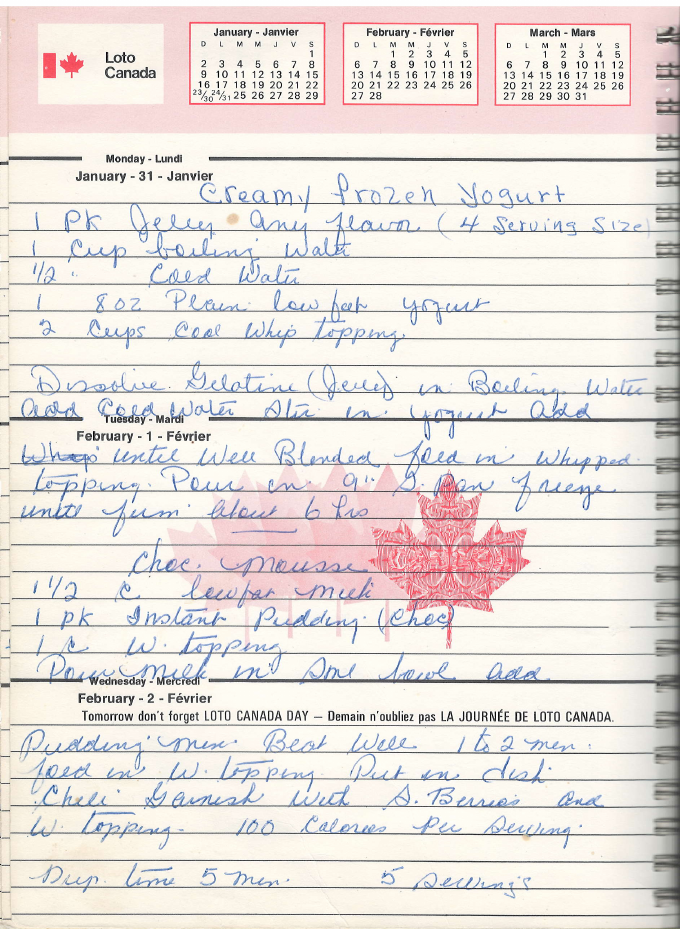 Loto
Canada
January - Janvier
D L M M J V S
1
2 3 4 5 6 7 8
9 10 11 12 13 14 15
16 17 18 19 20 21 22
23/30 24/31 25 26 27 28 29
February - Février
D L M M J V S
1 2 3 4 5
6 7 8 9 10 11 12
13 14 15 16 17 18 19
20 21 22 23 24 25 26
27 28
March - Mars
D L M M J V S
1 2 3 4 5
6 7 8 9 10 11 12
13 14 15 16 17 18 19
20 21 22 23 24 25 26
27 28 29 30 31
Monday - Lundi
January - 31 - Janvier
Creamy frozen Yogurt
1 PK Jelly any flavor (4 Serving Size)
1 Cup boiling Water
1/2 " Cold Water
1 8oz Plain low fat yogurt
2 Cups Cool Whip topping.
Dissolve Gelatine (Jello) in Boiling Water
add Cold Water Stir in yogurt add
Tuesday - Mardi
February - 1 - Février
Whip until Well Blended fold in Whipped
topping. Pour in 9" S. Pan freeze
until firm about 6 hrs
Choc. Mousse
1 1/2 C lowfat Milk
1 PK Instant Pudding (Choc)
1 C W. topping
Pour Milk in Sml bowl add
Wednesday - Mercredi
February - 2 - Février
Tomorrow don't forget LOTO CANADA DAY — Demain n'oubliez pas LA JOURNÉE DE LOTO CANADA.
Pudding mix. Beat Well 1 to 2 min.
fold in W. topping Put in dish
Chill Garnish With S. Berries and
W. topping- 100 Calories Per Serving.
Prep. time 5 min. 5 Servings